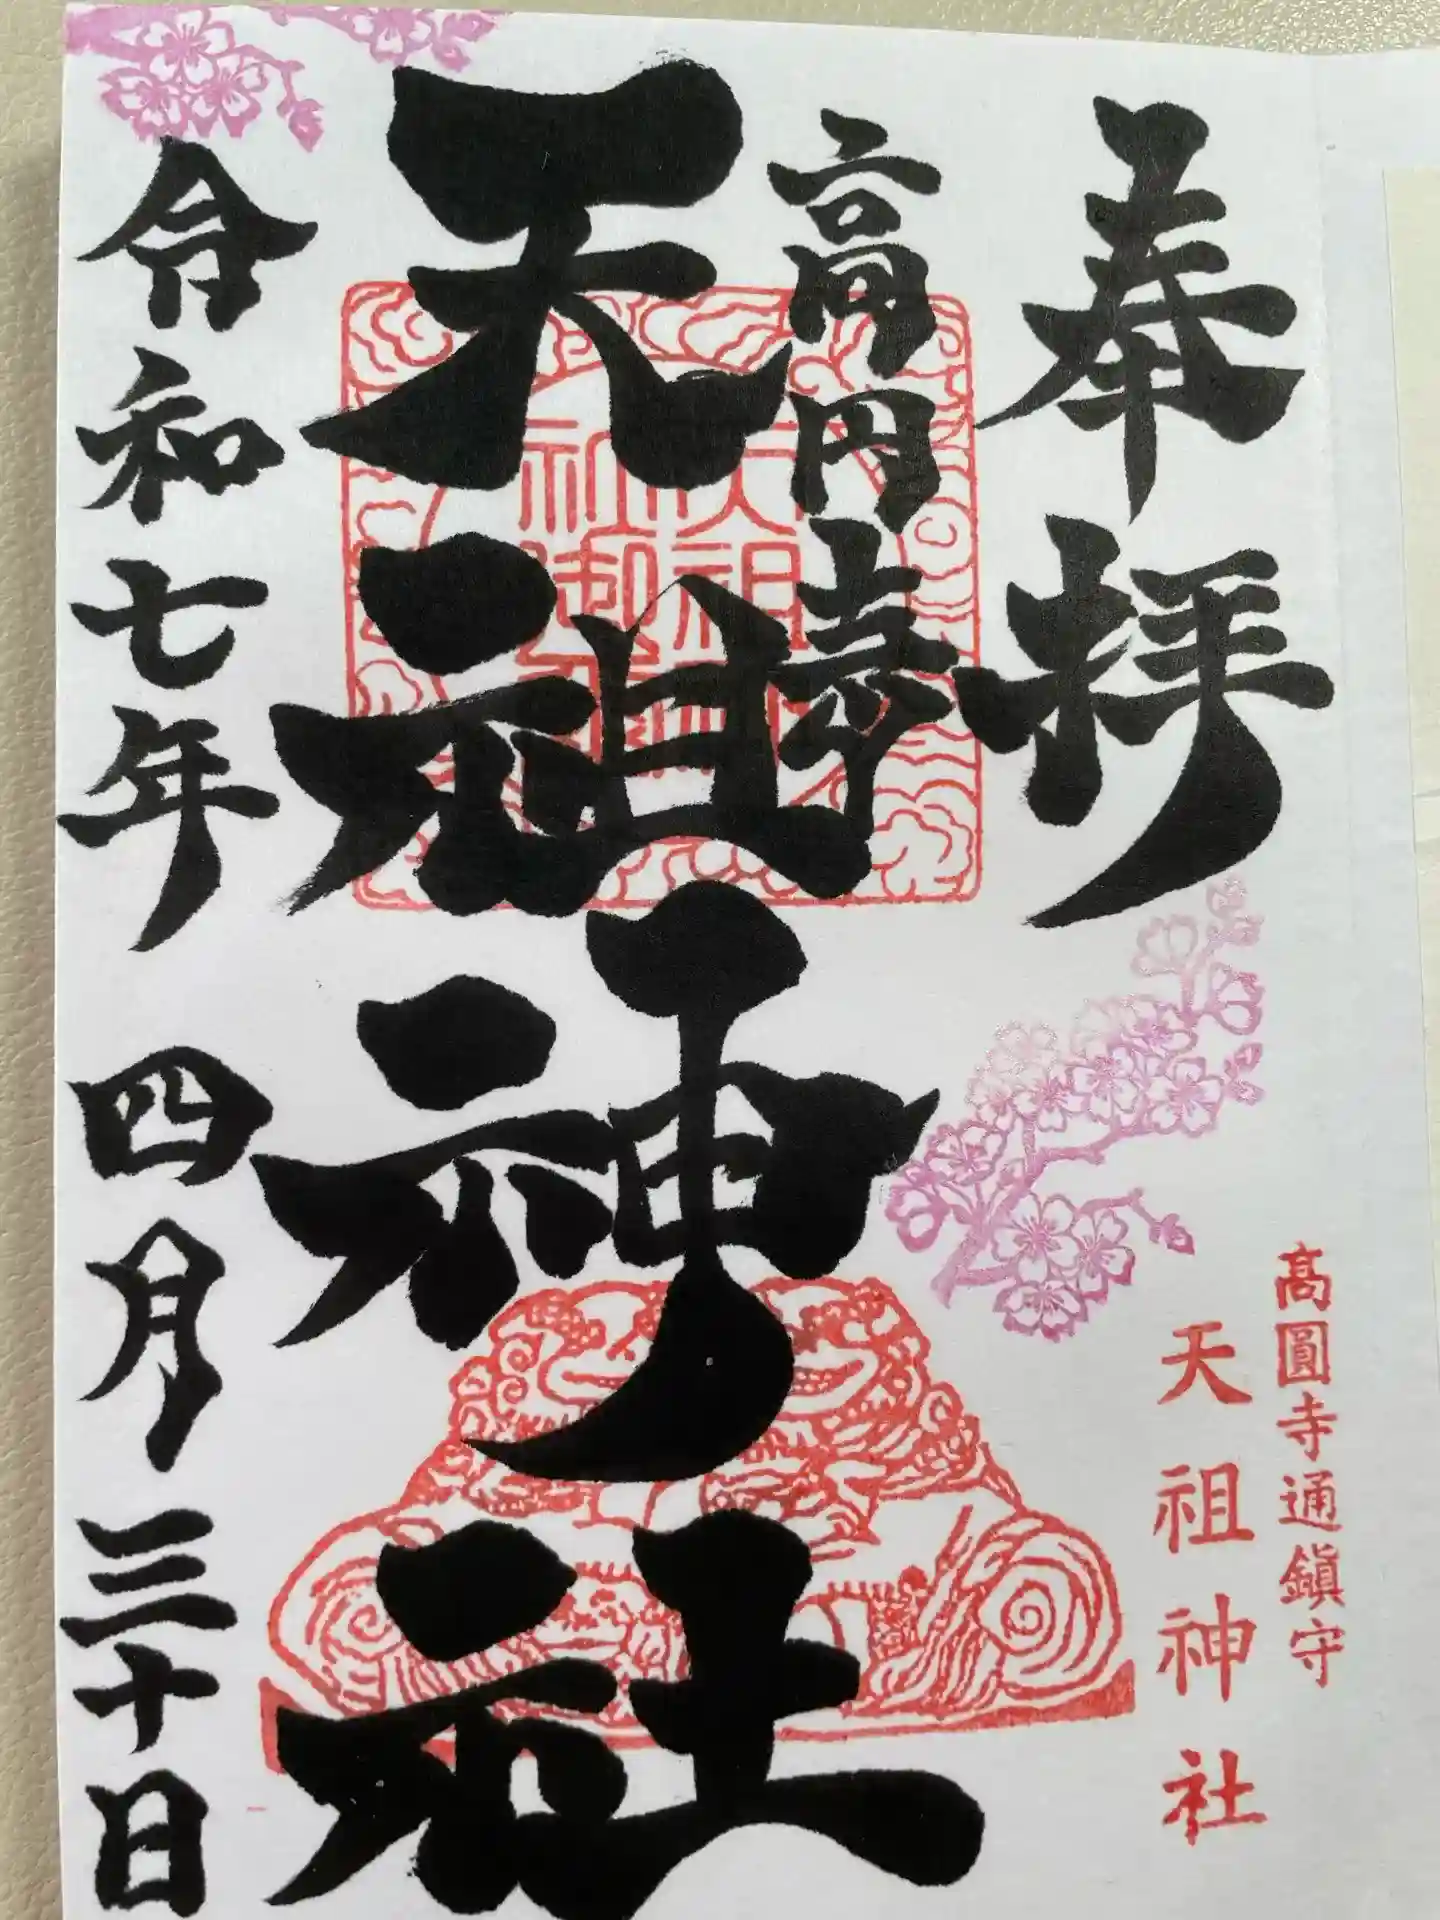 奉拝
高圓寺通鎮守
天祖神社
高円寺
天祖神社
令和七年 四月 三十日